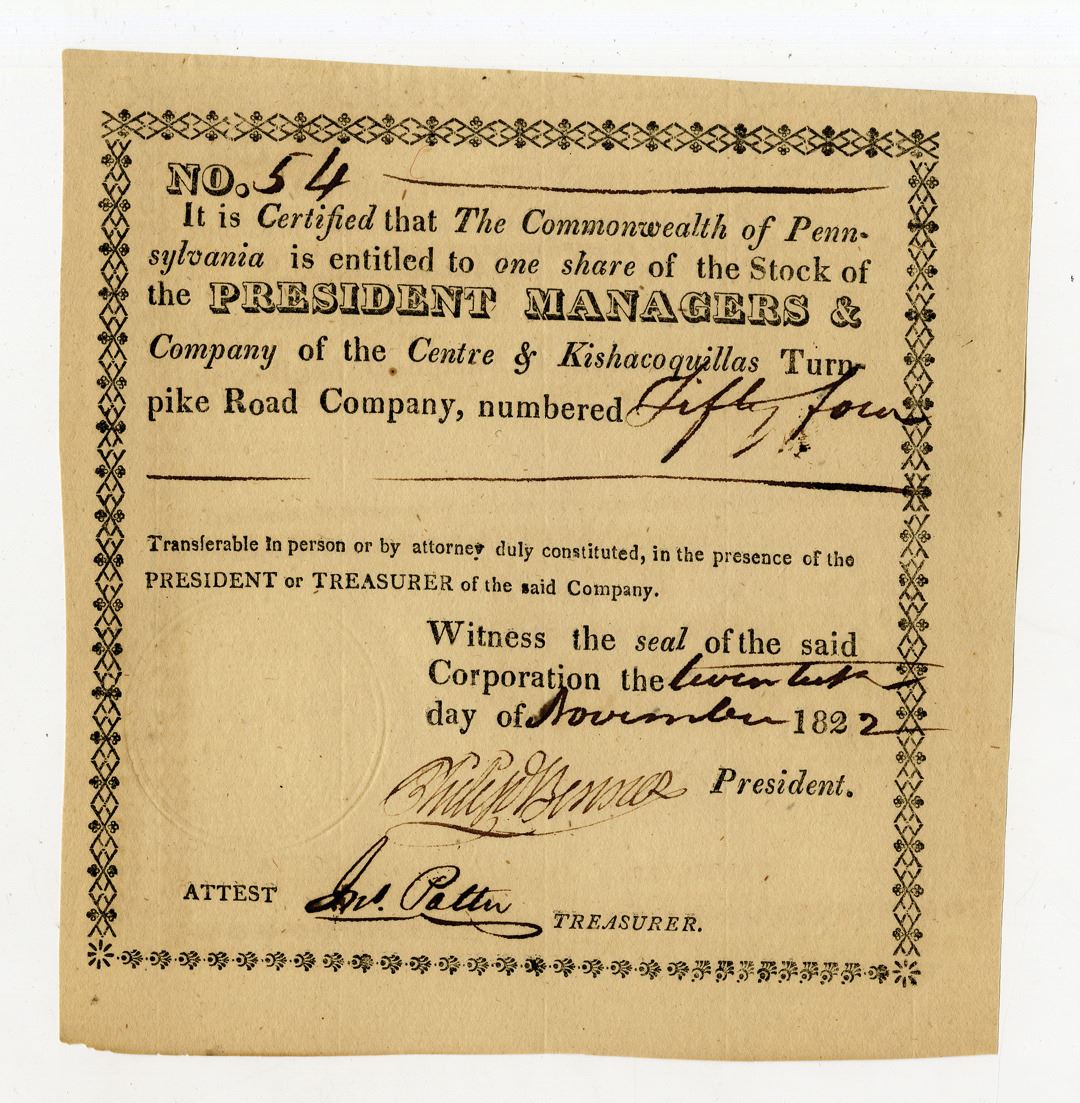 NO. 54
It is Certified that The Commonwealth of Penn-
sylvania is entitled to one share of the Stock of
the PRESIDENT MANAGERS &
Company of the Centre & Kishacoquillas Turn-
pike Road Company, numbered Fifty four
Transferable in person or by attorney duly constituted, in the presence of the
PRESIDENT or TREASURER of the said Company.
Witness the seal of the said
Corporation the twentieth
day of November 1822
Philip Benner President.
ATTEST Jno. Patton TREASURER.